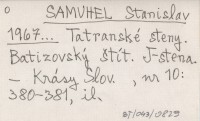 o
SAMUHEL Stanislav
1967... Tatranské steny.
Batizovský štít. J-stena.
- Krásy Slov. , nr 10:
380-381, il.
BT/043/0829